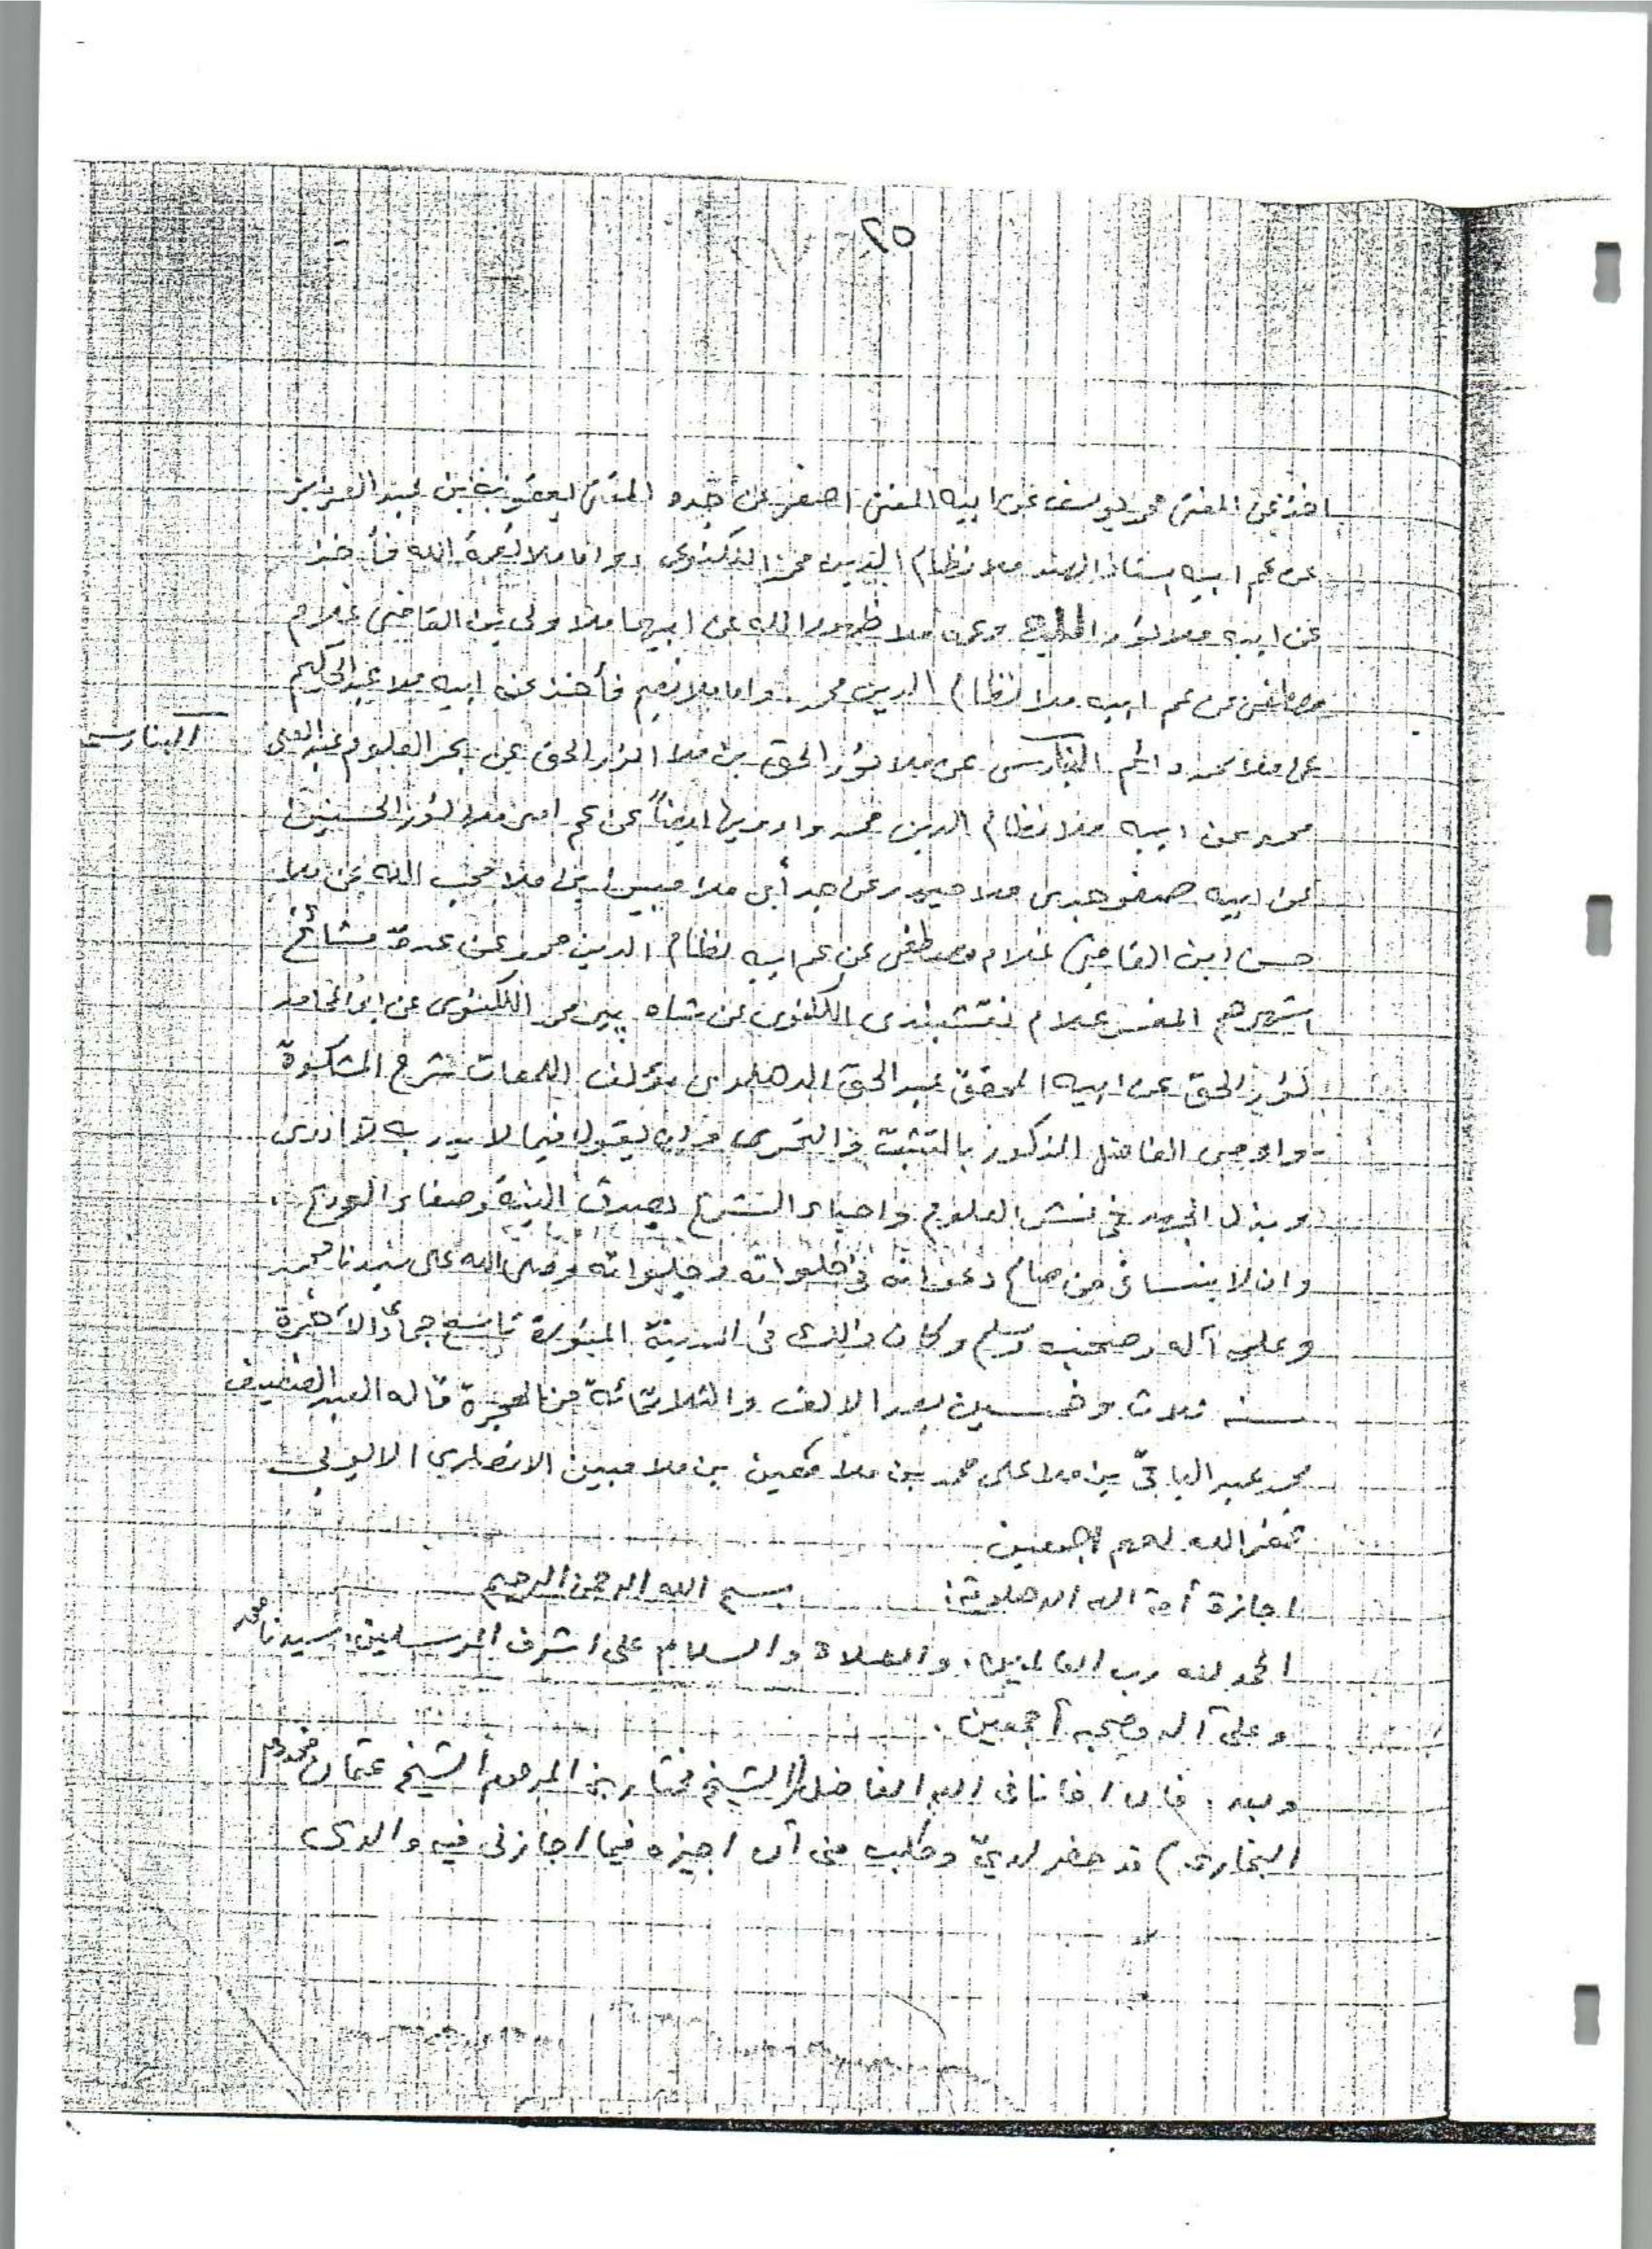 ٢٥
اخذ عن المفتى محمد يوسف عن ابيه المفتى اصغر عن جده المفتى يعقوب بن عبد العزيز
عن عم ابيه استاذ الهند ملا نظام الدين محمد اللكنوى واما ملا نعمة الله فأخذ
عن ابيه ملا نور الله وعمه ملا ظهور الله عن ابيهما ملا ولى بن القاضى غلام
مصطفى عن عم ابيه ملا نظام الدين محمد. واما ملا نعيم فأخذ عن ابيه ملا عبد الحكيم
عن ملا محمد دائم البنارسى عن ملا نور الحق بن ملا انوار الحق عن بحر العلوم عبد العلى
البنارسى
محمد عن ابيه ملا نظام الدين محمد وارويها ايضاً عن عم امى ملا نور الحسنين
عن ابيه صفو جدى ملا حيدر عن جد أبى ملا مبين ابن ملا محب الله عن ملا
حسن ابن القاضى غلام مصطفى عن عم ابيه نظام الدين محمد عن عدة مشائخ
اشهرهم المفتى غلام نقشبندى اللكنوى عن شاه پير محمد اللكنوى عن
نور الحق عن ابيه المحقق عبد الحق الدهلوى مؤلف اللمعات شرح المشكوة
واوصى الفاضل المذكور بالتثبت والتحرى وان يقول فيما لا يدر به لا ادرى
وبذل الجهد فى نشر العلوم واحياء الشرع بصدق النية وصفاء
وان لا ينسانى من صالح دعواته فى خلواته وجلواته وصلى الله على سيدنا محمد
وعلى آله وصحبه وسلم وكان ذالك فى المدينة المنورة تاسع جماد الاخرة
سنه ثلاث وخمسين بعد الالف والثلاثمائة من الهجرة قاله العبد الضعيف
محمد عبد الباقى بن ملا على محمد بن ملا معين بن ملا مبين الانصارى الايوبى
غفر الله لهم اجمعين
اجازة أمة الله الدهلوية: بسم الله الرحمن الرحيم
الحمد لله رب العالمين، والصلاة والسلام على اشرف المرسلين، سيدنا محمد
وعلى آله وصحبه أجمعين.
وبعد. فان اخانا فى الله الفاضل (الشيخ مختار بن المرحوم الشيخ عثمان مخدوم
البخارى) قد حضر لدىّ وطلب منى أن اجيزه فيما اجازنى فيه والدى